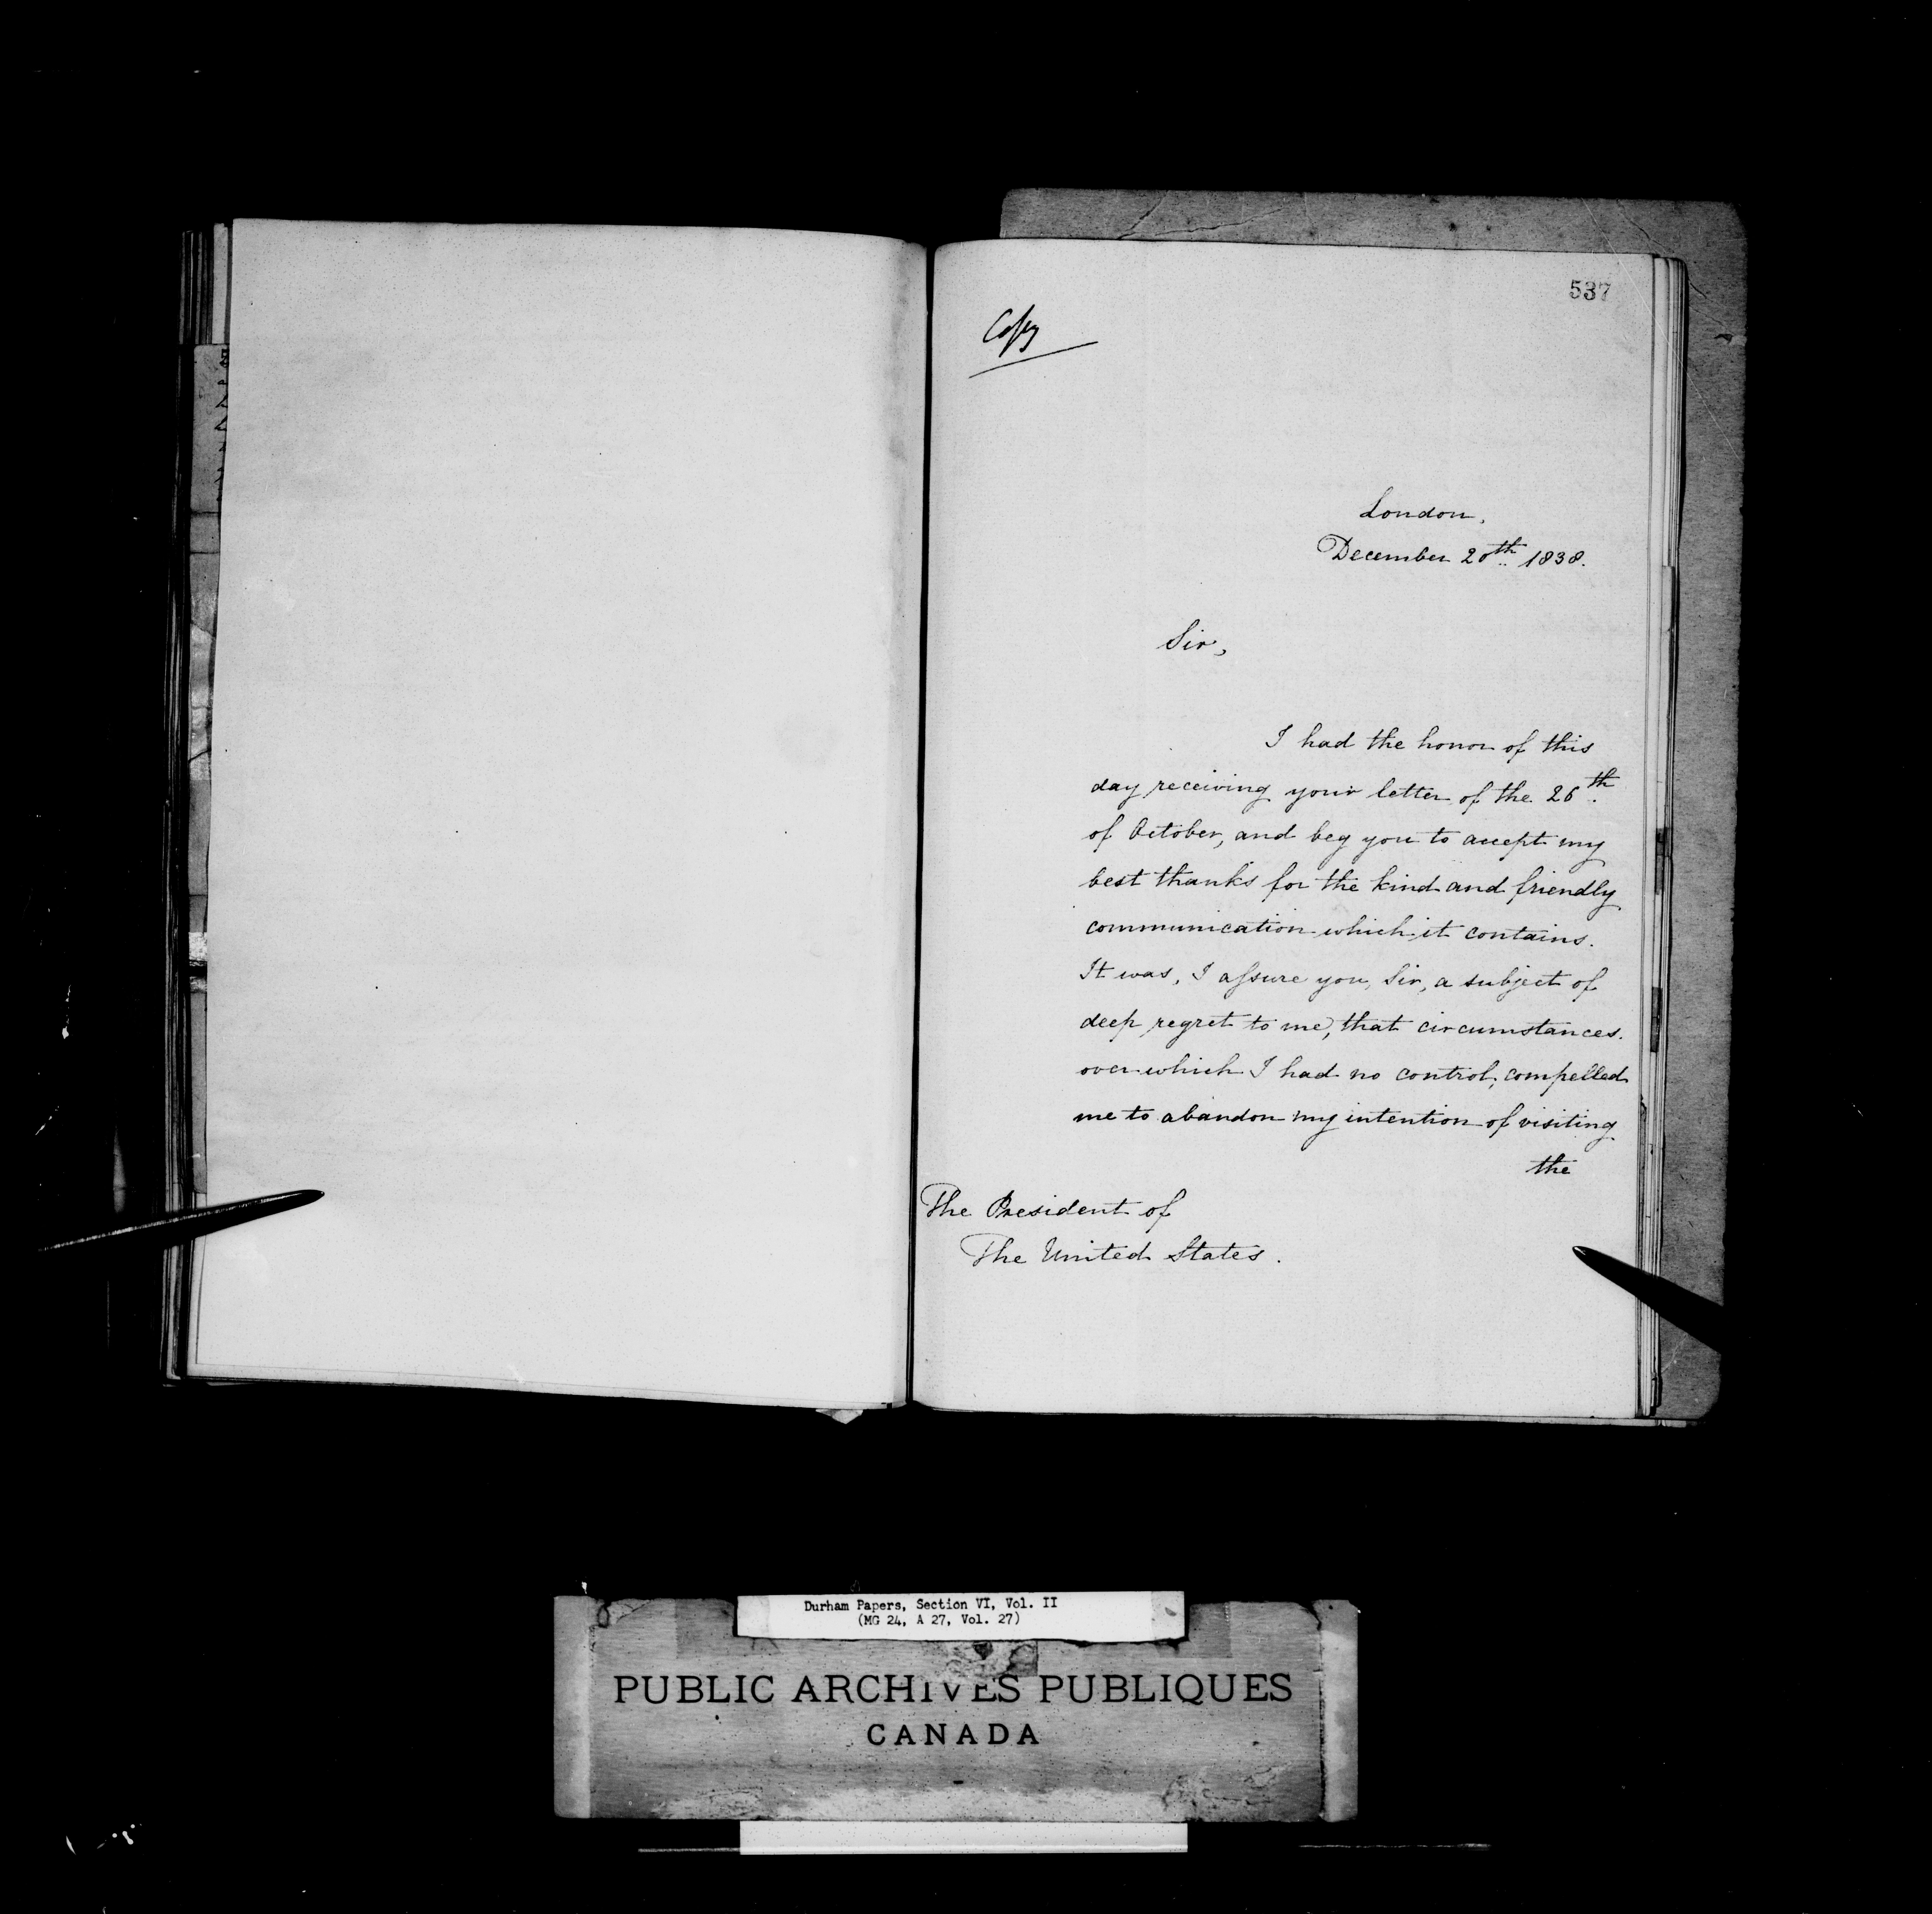 537
Copy
London,
December 20th 1838.
Sir,
I had the honor of this
day receiving your letter of the 26th
of October, and beg you to accept my
best thanks for the kind and friendly
communication which it contains.
It was, I assure you, Sir, a subject of
deep regret to me, that circumstances
over which I had no control, compelled
me to abandon my intention of visiting
the
The President of
The United States.
Durham Papers, Section VI, Vol. II
(MG 24, A 27, Vol. 27)
PUBLIC ARCHIVES PUBLIQUES
CANADA